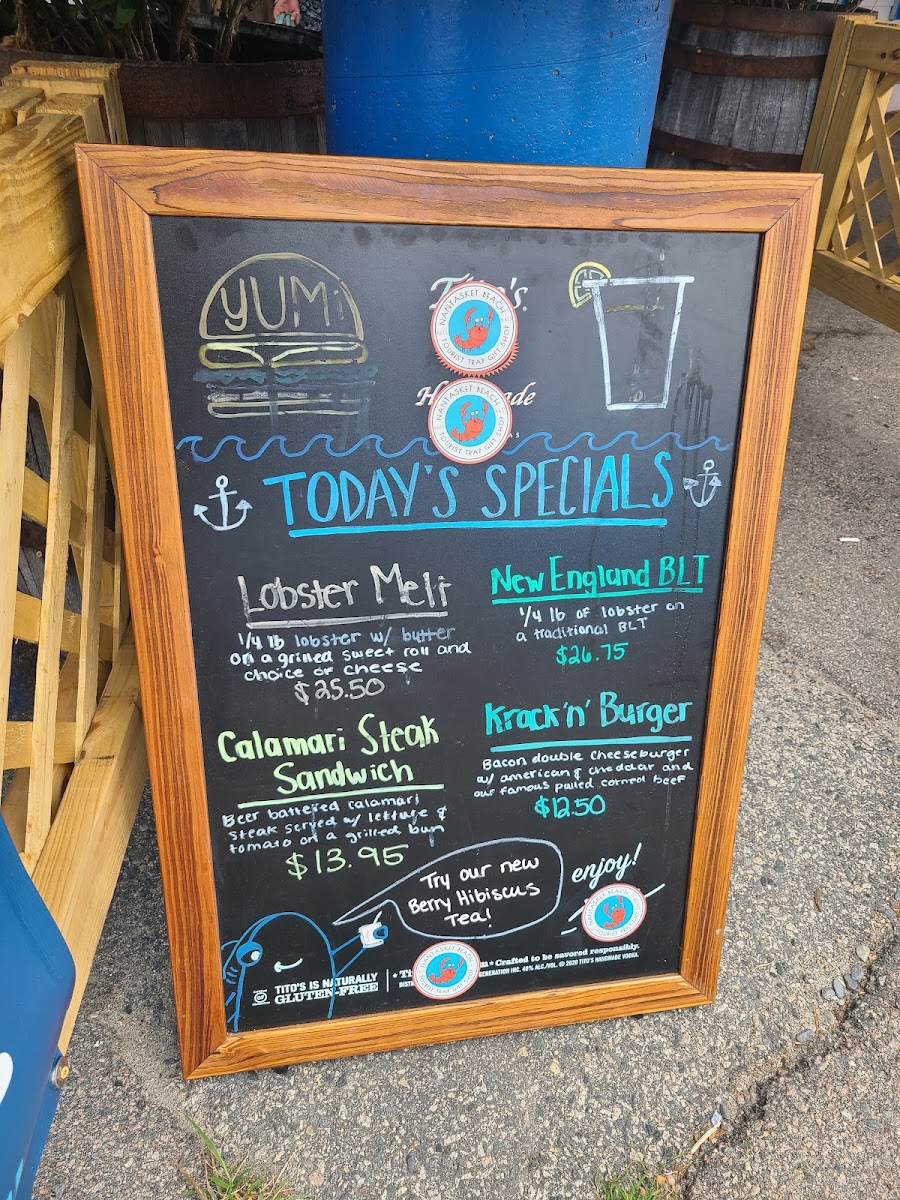 YUM!
NANTASKET BEACH
TOURIST TRAP GIFT SHOP
NANTASKET BEACH
TOURIST TRAP GIFT SHOP
TODAY'S SPECIALS
Lobster Melt
1/4 lb lobster w/ butter
on a grilled sweet roll and
choice of cheese
$25.50
New England BLT
1/4 lb of lobster on
a traditional BLT
$26.75
Calamari Steak
Sandwich
Beer battered calamari
steak served w/ lettuce &
tomato on a grilled bun
$13.95
Krack'n' Burger
Bacon double cheeseburger
w/ american & cheddar and
our famous pulled corned beef
$12.50
Try our new
Berry Hibiscus
Tea!
enjoy!
NANTASKET BEACH
NANTASKET BEACH
TITO'S IS NATURALLY
GLUTEN-FREE
* Crafted to be savored responsibly.
INC. 40% ALC./VOL. © 2020 TITO'S HANDMADE VODKA.